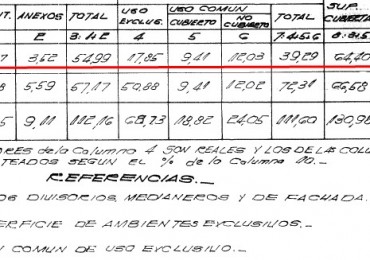 NT. ANEXOS TOTAL USO EXCLUS. USO COMUN CUBIERTO NO CUBIERTO TOTAL SUP. CUBIERTA
2 3:1+2 4 5 6 7:4+5+6 8:3+5
7 3,52 54,99 17,85 9,41 12,03 39,29 64,40
8 5,59 57,17 50,88 9,41 12,02 72,31 66,58
5 9,11 112,16 68,73 18,82 24,05 111,60 130,98
ORES de la Columna 4 SON REALES Y LOS DE LAS COLU
TEADOS SEGUN EL % de la Columna 10._
REFERENCIAS._
OS DIVISORIOS, MEDIANEROS Y DE FACHADA.
ERFICIE DE AMBIENTES EXCLUSIVOS._
N COMUN DE USO EXCLUSIVO._